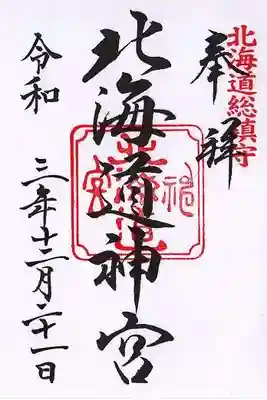 北海道総鎮守
奉拝
北海道神宮
令和三年十二月二十一日